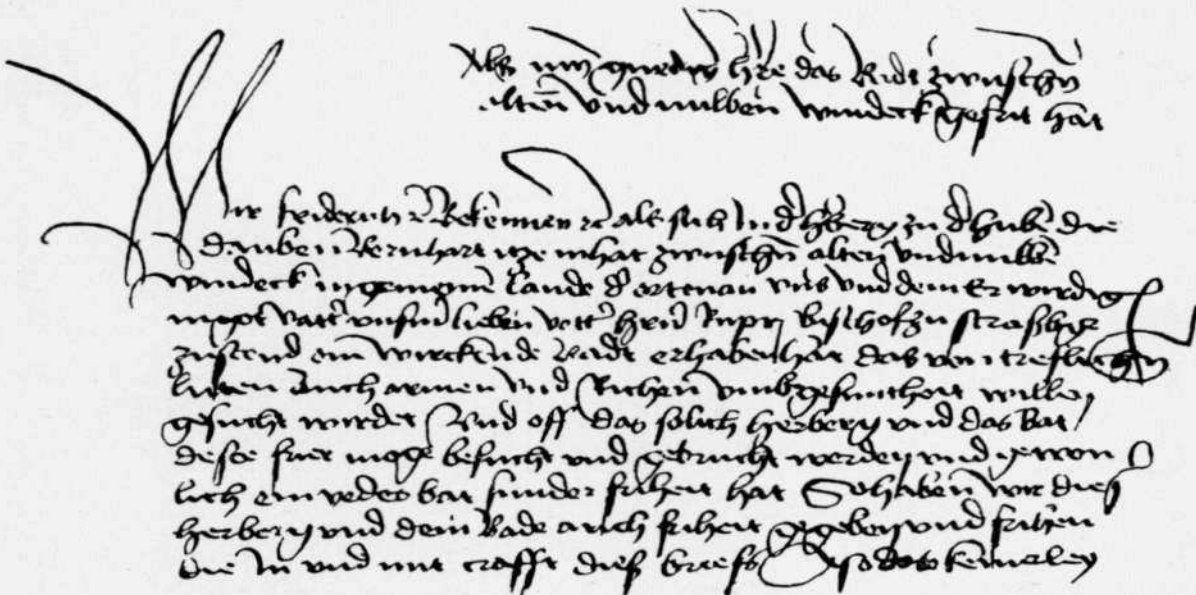 Als myn gnediger h're das Badt zwuschen
alten und nuwen windeck gefrit hat
Wir friderich etc Bekennen etc als sich In d' h'berg zu d' hube die
Bernhart inhat zwuschen alten und nuwen
windeck in gemeynem lande d' ortenau uns und dem Erwirdigen
in got vatt' unserm lieben vett' hern Rupr Bischof zu straßburg
zusteend ein wirckende Badt erhaben hat das von treflichen
luten auch armen und Richen umb gesuntheit willen
gesucht wirdet Und off das solich herberg und das bat
deste furer moge besucht und gebrucht werden und gewon
lich ein yedes bat sunder friheit hat So haben wir dieser
herberg und dem Bade auch friheit gegeben und friheen
die In und mit crafft dieß briefs Also das keinerley